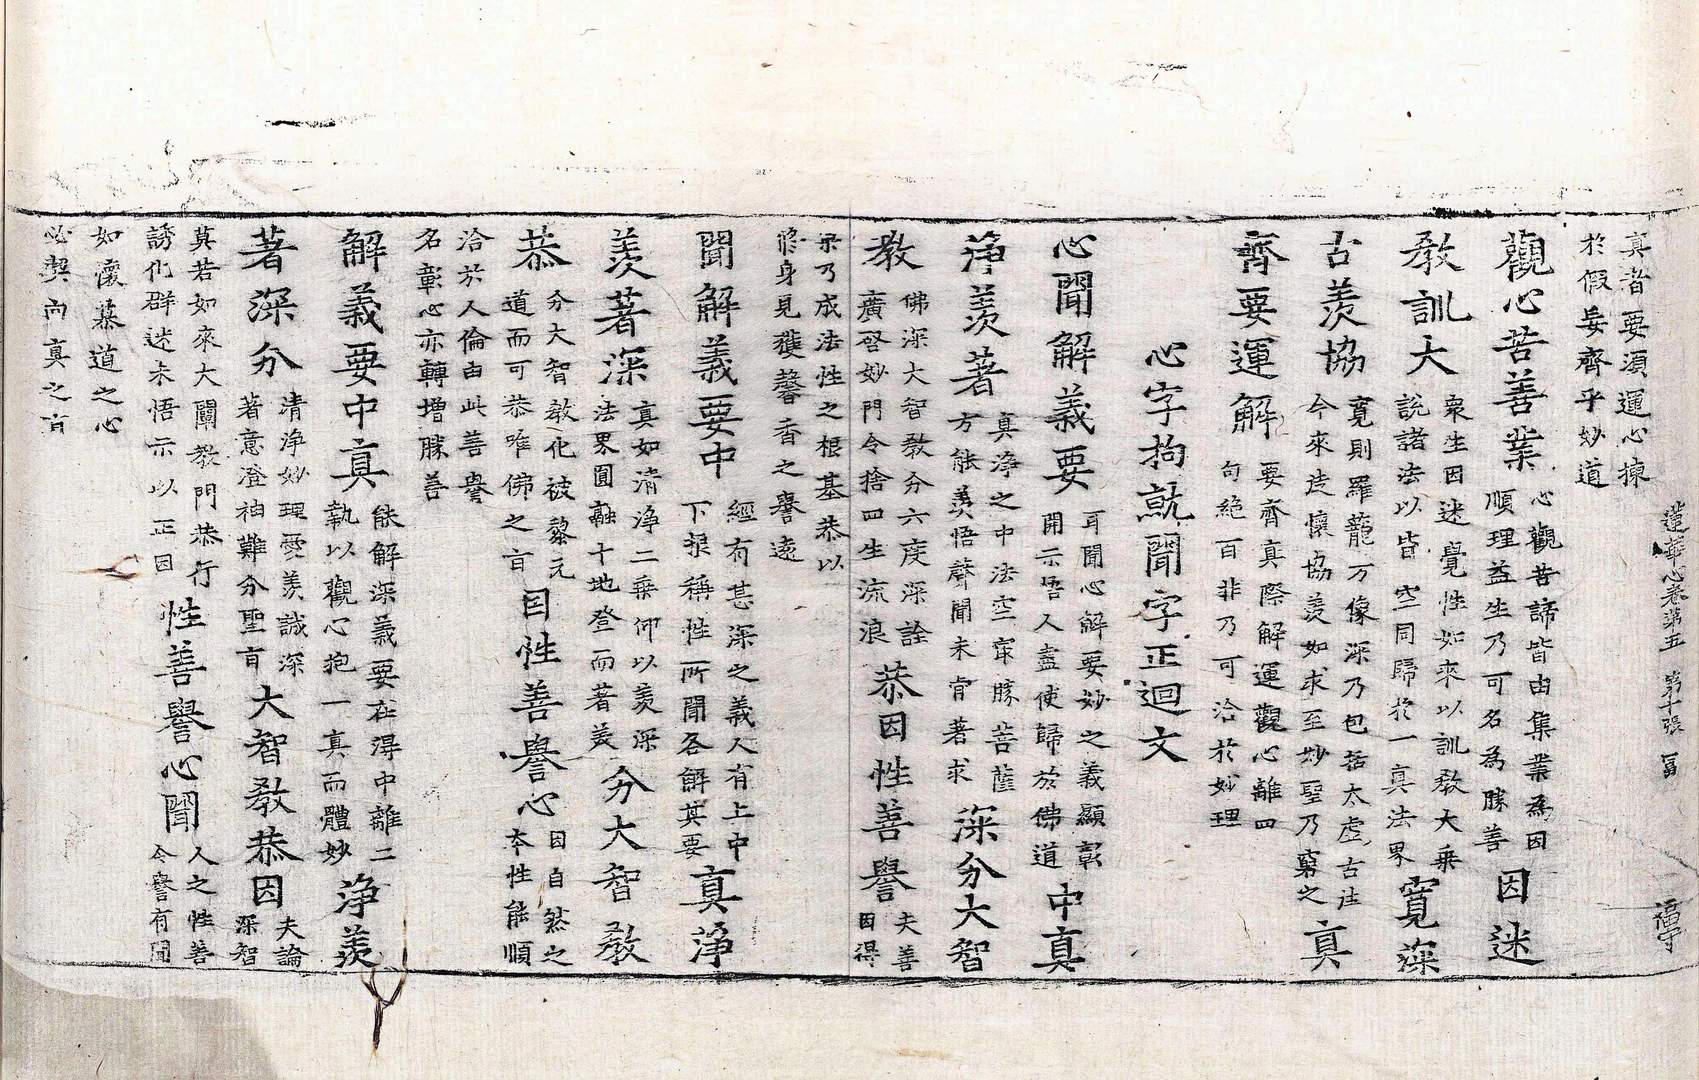 蓮華心卷第五 第十張 冨
真者要須運心揀
於假妄齊乎妙道
觀心苦善業 心觀苦諦皆由集業為因
順理益生乃可名為勝善 因迷
教訓大 衆生因迷覺性如來以訓教大乘
說諸法以皆空同歸於一真法界 寬深
古羨協 寬則羅籠万像深乃包括太虛古往
今來志懷協羨如求至妙聖乃窮之 真
齊要運解 要齊真際解運觀心離四
句絶百非乃可洽於妙理
心字拘就聞字正迴文
心聞解義要 耳聞心解要妙之義顯彰
開示悟人盡使歸於佛道 中真
淨羨著 真淨之中法空寂勝菩薩
方能羨悟聲聞未肯著求 深分大智
教 佛深大智教分六度深詮
廣啓妙門令捨四生流浪 恭因性善譽 夫善
因得
乃成法性之根基恭以
修身見獲馨香之譽遠
聞解義要中 經有甚深之義人有上中
下根稱性所聞各解其要 真淨
羨著深 真如清淨二乘仰以羨深
法界圓融十地登而著美 分大智教
恭 分大智教化被黎元
道而可恭唯佛之旨 因性善譽心 因自然之
本性能順
洽於人倫由此善譽
名彰心亦轉增勝善
解義要中真 能解深義要在得中離二
執以觀心抱一真而體妙 淨羨
著深分 清淨妙理雲羨誠深
著意澄神難分聖旨 大智教恭因 夫論
深智
莫若如來大闡教門恭行
誘化群迷未悟示以正因 性善譽心聞 人之性善
令譽有聞
如懷慕道之心
必契向真之旨